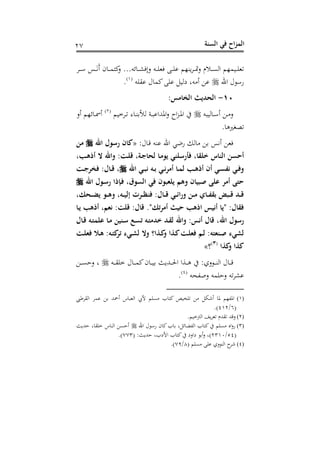 المزاح في السنة
٢٧
تعليمهم السلام وتمرينهم على فعله وإفشائه... وكتمان أنس سر
رسول الله ﷺ عن أمه، دليل على كمال عقله (١).
١٠- الحديث الخامس:
ومن أساليبه ﷺ في المزاح والمداعبة للأبناء ترخيم (٢) أسمائهم أو
تصغيرها.
فعن أنس بن مالك رضي الله عنه قال: «كان رسول الله ﷺ من
أحسن الناس خلقا، فأرسلني يوما لحاجة، فقلت: والله لا أذهب،
وفي نفسي أن أذهب لما أمرني به نبي الله ﷺ، قال: فخرجت
حتى أمر على صبيان وهم يلعبون في السوق، فإذا رسول الله ﷺ
قد قبض بقفاي من ورائي قال: فنظرت إليه، وهو يضحك،
فقال: "يا أنيس اذهب حيث أمرتك". قال: قلت: نعم، أذهب يا
رسول الله، قال أنس: والله لقد خدمته تسع سنين ما علمته قال
لشيء صنعته: لم فعلت كذا وكذا؟ ولا لشيء تركته: هلا فعلت
كذا وكذا (٣)»
قال النووي: في هذا الحديث بيان كمال خلقه ﷺ، وحسن
عشرته وحلمه وصفحه (٤).
(١) المفهم لما أشكل من تلخيص كتاب مسلم لأبي العباس أحمد بن عمر القرطبي
(٤١٢/٦).
(٢) وقد تقدم تعريف الترخيم.
(٣) رواه مسلم في كتاب الفضائل، باب كان رسول الله ﷺ أحسن الناس خلقا، حديث
(٢٣١٠/٥٤)، وأبو داود في كتاب الأدب، حديث: (٧٧٣).
(٤) شرح النووي على مسلم (٧٢/٨).